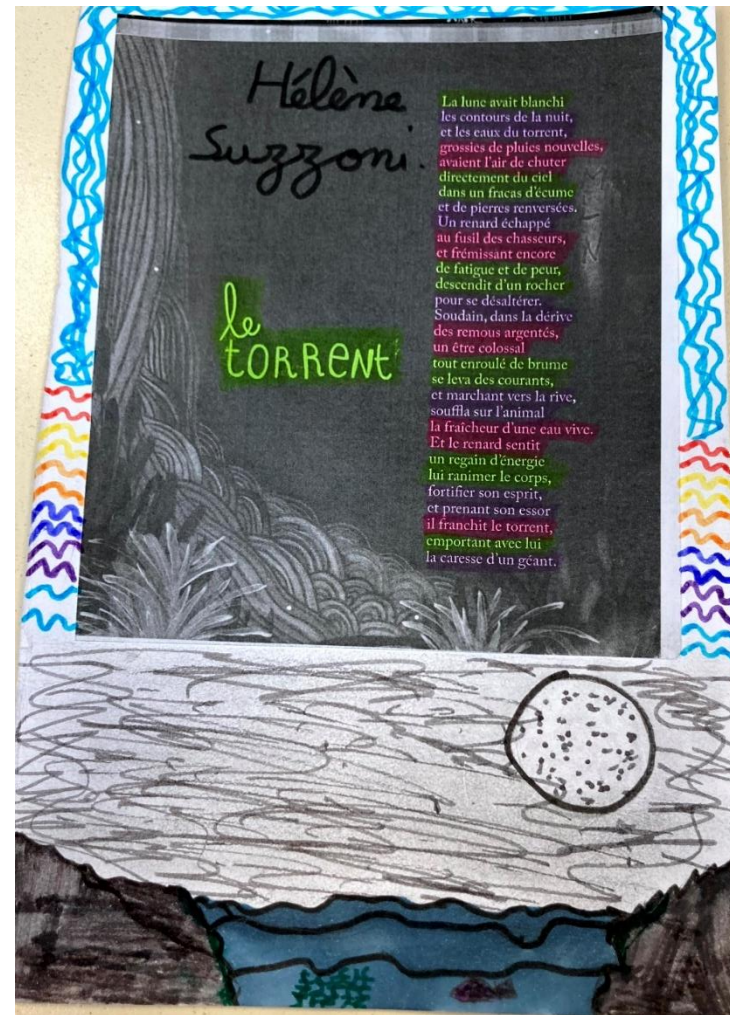 Hélène
Suzzoni.
le
torrent
La lune avait blanchi
les contours de la nuit,
et les eaux du torrent,
grossies de pluies nouvelles,
avaient l'air de chuter
directement du ciel
dans un fracas d'écume
et de pierres renversées.
Un renard échappé
au fusil des chasseurs,
et frémissant encore
de fatigue et de peur,
descendit d'un rocher
pour se désaltérer.
Soudain, dans la dérive
des remous argentés,
un être colossal
tout enroulé de brume
se leva des courants,
et marchant vers la rive,
souffla sur l'animal
la fraîcheur d'une eau vive.
Et le renard sentit
un regain d'énergie
lui ranimer le corps,
fortifier son esprit,
et prenant son essor
il franchit le torrent,
emportant avec lui
la caresse d'un géant.